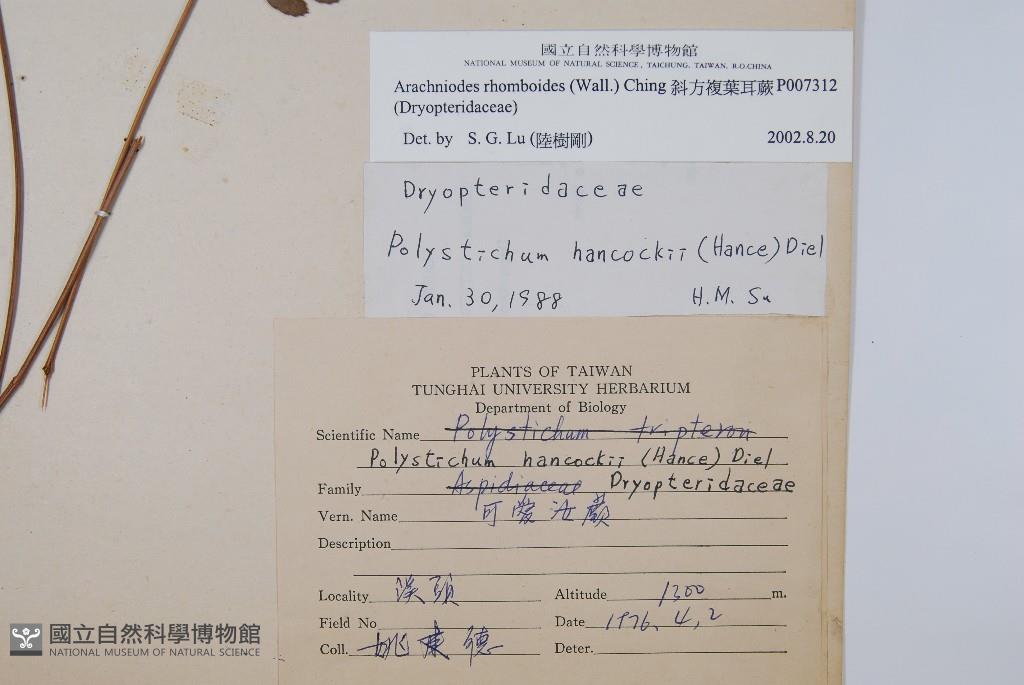 國立自然科學博物館
NATIONAL MUSEUM OF NATURAL SCIENCE, TAICHUNG, TAIWAN, R.O.CHINA
Arachniodes rhomboides (Wall.) Ching 斜方複葉耳蕨 P007312
(Dryopteridaceae)
Det. by S. G. Lu (陸樹剛) 2002.8.20
Dryopteridaceae
Polystichum hancockii (Hance) Diel
Jan. 30, 1988 H.M. Su
PLANTS OF TAIWAN
TUNGHAI UNIVERSITY HERBARIUM
Department of Biology
Scientific Name Polystichum tripteron
Polystichum hancockii (Hance) Diel
Family Aspidiaceae Dryopteridaceae
Vern. Name 可愛
Description
Locality 溪頭 Altitude 1300 m.
Field No Date 1976. 4, 2
Coll. 德 Deter.
國立自然科學博物館
NATIONAL MUSEUM OF NATURAL SCIENCE